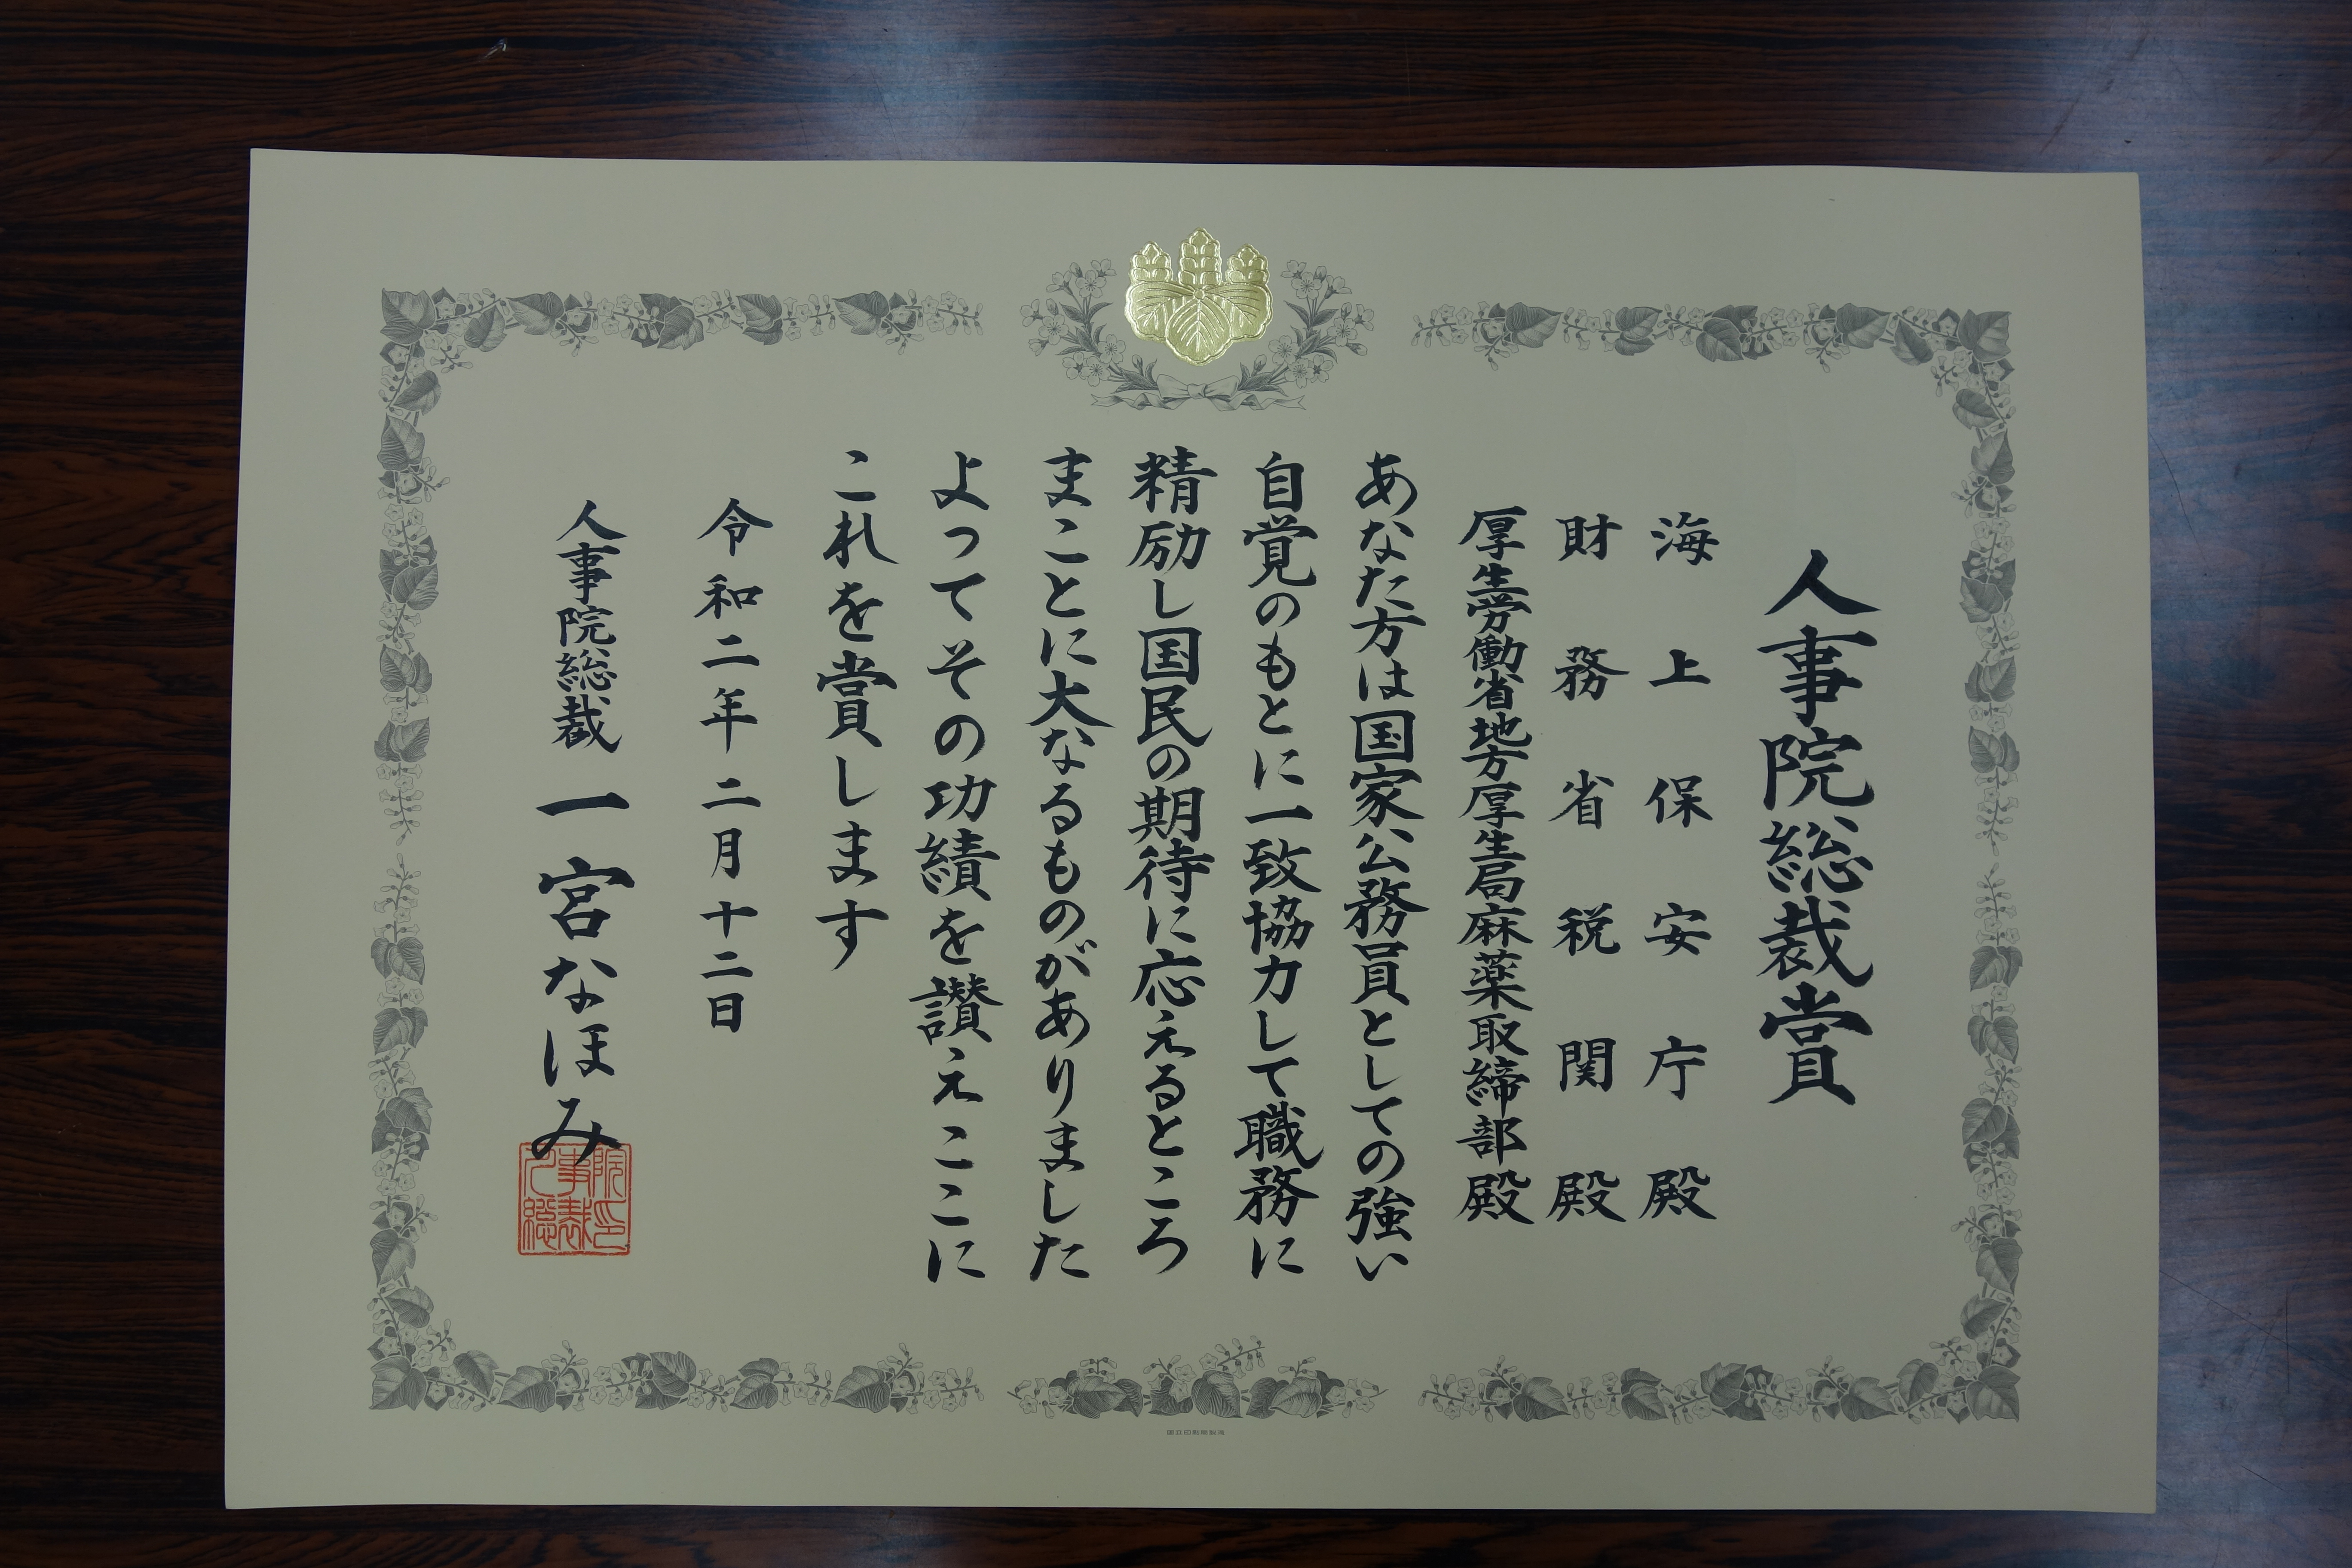 人事院総裁賞
海上保安庁殿
財務省税関殿
厚生労働省地方厚生局麻薬取締部殿
あなた方は国家公務員としての強い
自覚のもとに一致協力して職務に
精励し国民の期待に応えるところ
まことに大なるものがありました
よってその功績を讃えここに
これを賞します
令和二年二月十二日
人事院総裁 一宮なほみ
国立印刷局製造